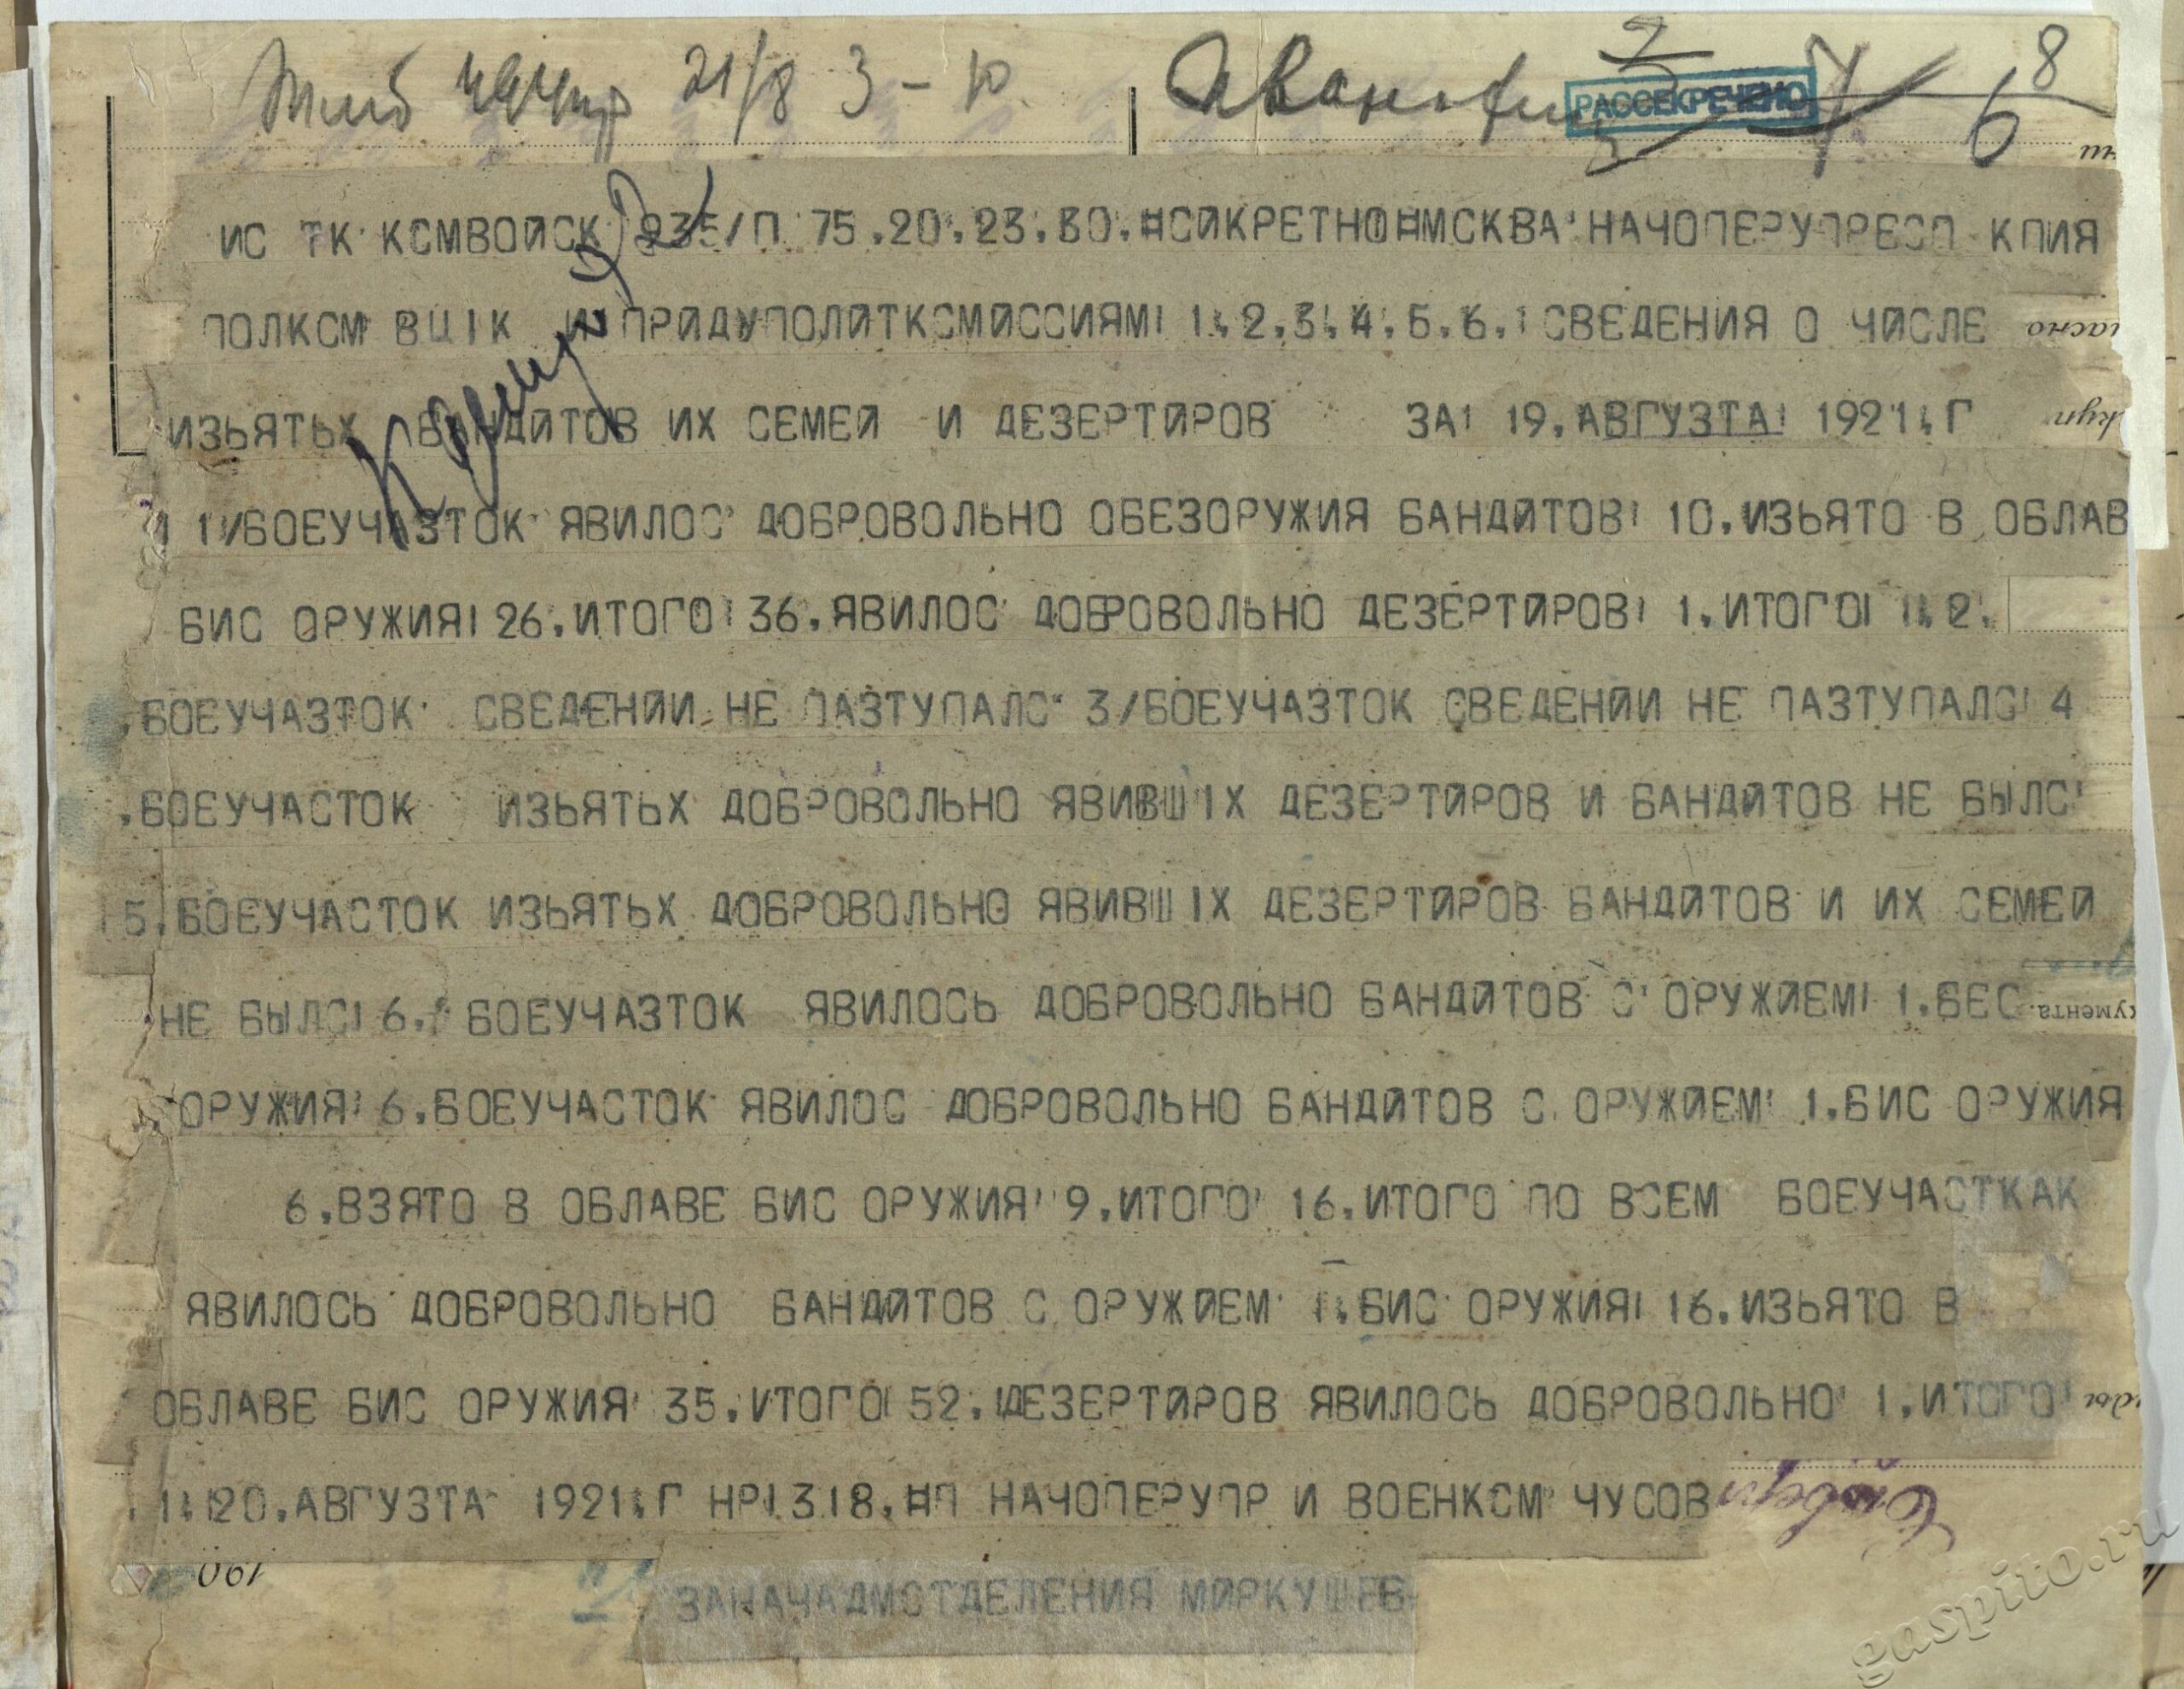 21/8 3-10
8
6
РАССЕКРЕЧЕНО
ИС ТК КСМВОЙСК 235/П 75.20.23.30.¤СИКРЕТНО¤МСКВА НАЧОПЕРУПРЕСП КПИЯ
ПОЛКСМ ВЦIК И ПРИДУПОЛИТКСМИССИЯМ 1.2.3.4.5.6. СВЕДЕНИЯ О ЧИСЛЕ
ИЗЬЯТЬХ БАНДИТОВ ИХ СЕМЕЙ И ДЕЗЕРТИРОВ ЗА 19.АВГУЗТА 1921.Г
1/БОЕУЧАЗТОК ЯВИЛОС ДОБРОВОЛЬНО ОБЕЗОРУЖИЯ БАНДИТОВ 10.ИЗЬЯТО В ОБЛАВ
БИС ОРУЖИЯ 26.ИТОГО 36.ЯВИЛОС ДОБРОВОЛЬНО ДЕЗЕРТИРОВ 1.ИТОГО 1.2.
.БОЕУЧАЗТОК СВЕДЕНИИ НЕ ПАЗТУПАЛС 3/БОЕУЧАЗТОК СВЕДЕНИИ НЕ ПАЗТУПАЛС 4
.БОЕУЧАСТОК ИЗЬЯТЬХ ДОБРОВОЛЬНО ЯВИВШIХ ДЕЗЕРТИРОВ И БАНДИТОВ НЕ БЫЛС
5.БОЕУЧАСТОК ИЗЬЯТЬХ ДОБРОВОЛЬНО ЯВИВШIХ ДЕЗЕРТИРОВ БАНДИТОВ И ИХ СЕМЕЙ
НЕ БЫЛС 6. БОЕУЧАЗТОК ЯВИЛОСЬ ДОБРОВОЛЬНО БАНДИТОВ С ОРУЖИЕМ 1.БЕС
ОРУЖИЯ 6.БОЕУЧАСТОК ЯВИЛОС ДОБРОВОЛЬНО БАНДИТОВ С ОРУЖИЕМ 1.БИС ОРУЖИЯ
6.ВЗЯТО В ОБЛАВЕ БИС ОРУЖИЯ 9.ИТОГО 16.ИТОГО ПО ВСЕМ БОЕУЧАСТКАК
ЯВИЛОСЬ ДОБРОВОЛЬНО БАНДИТОВ С ОРУЖИЕМ 1.БИС ОРУЖИЯ 16.ИЗЬЯТО В
ОБЛАВЕ БИС ОРУЖИЯ 35.ИТОГО 52.ДЕЗЕРТИРОВ ЯВИЛОСЬ ДОБРОВОЛЬНО 1.ИТОГО
1.20.АВГУЗТА 1921.Г НР 318.¤П НАЧОПЕРУПР И ВОЕНКСМ ЧУСОВ
190
ЗАНАЧАДМОТДЕЛЕНИЯ МИРКУШЕВ
gaspito.ru